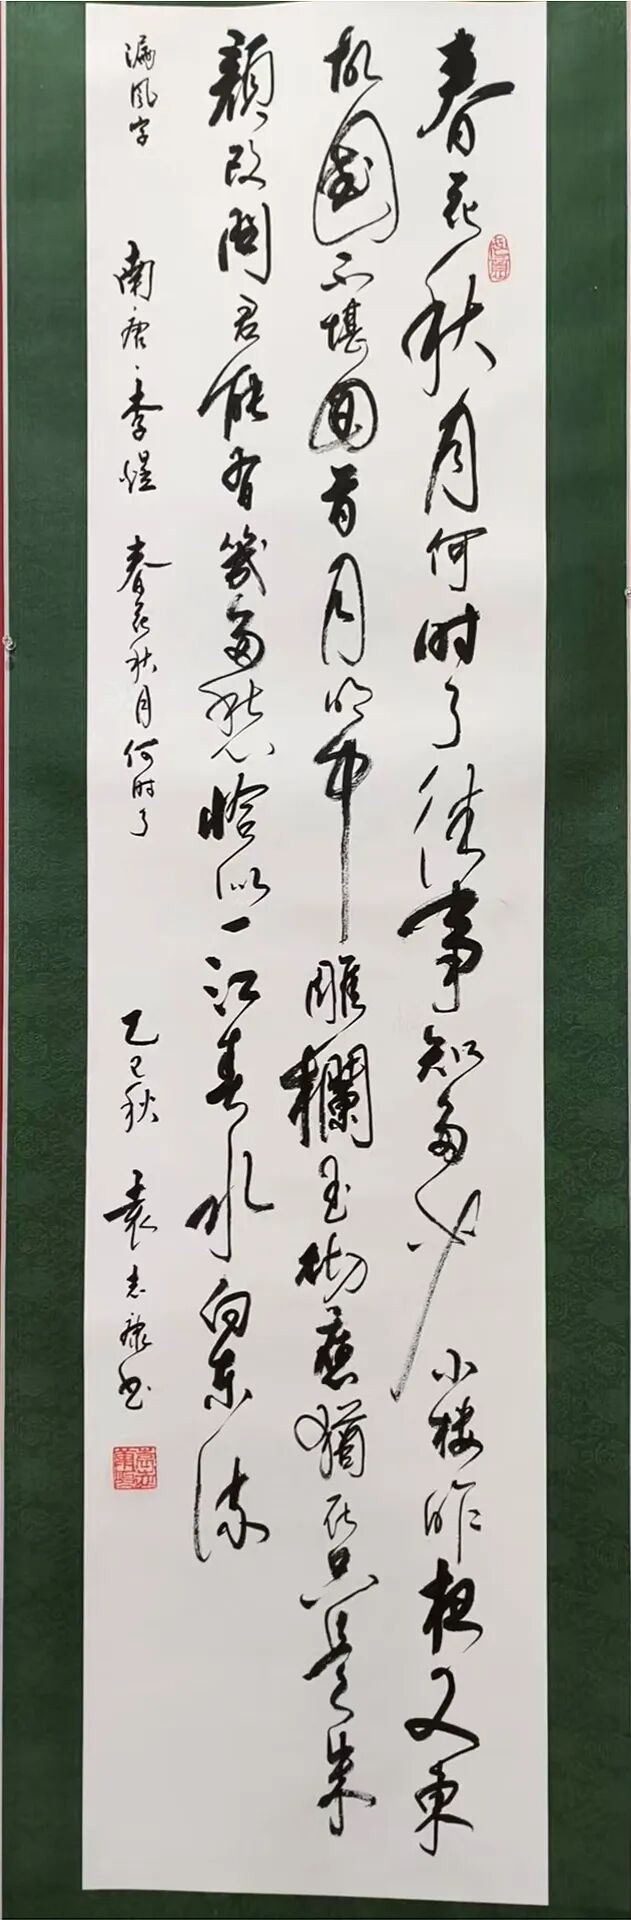 春花秋月何时了往事知多少小楼昨夜又東
故國不堪回首月明中雕欄玉砌應猶在只是朱
顏改問君能有幾多愁恰似一江春水向东流
漏风字 南唐·李煜 春花秋月何时了 乙巳秋 袁志康书